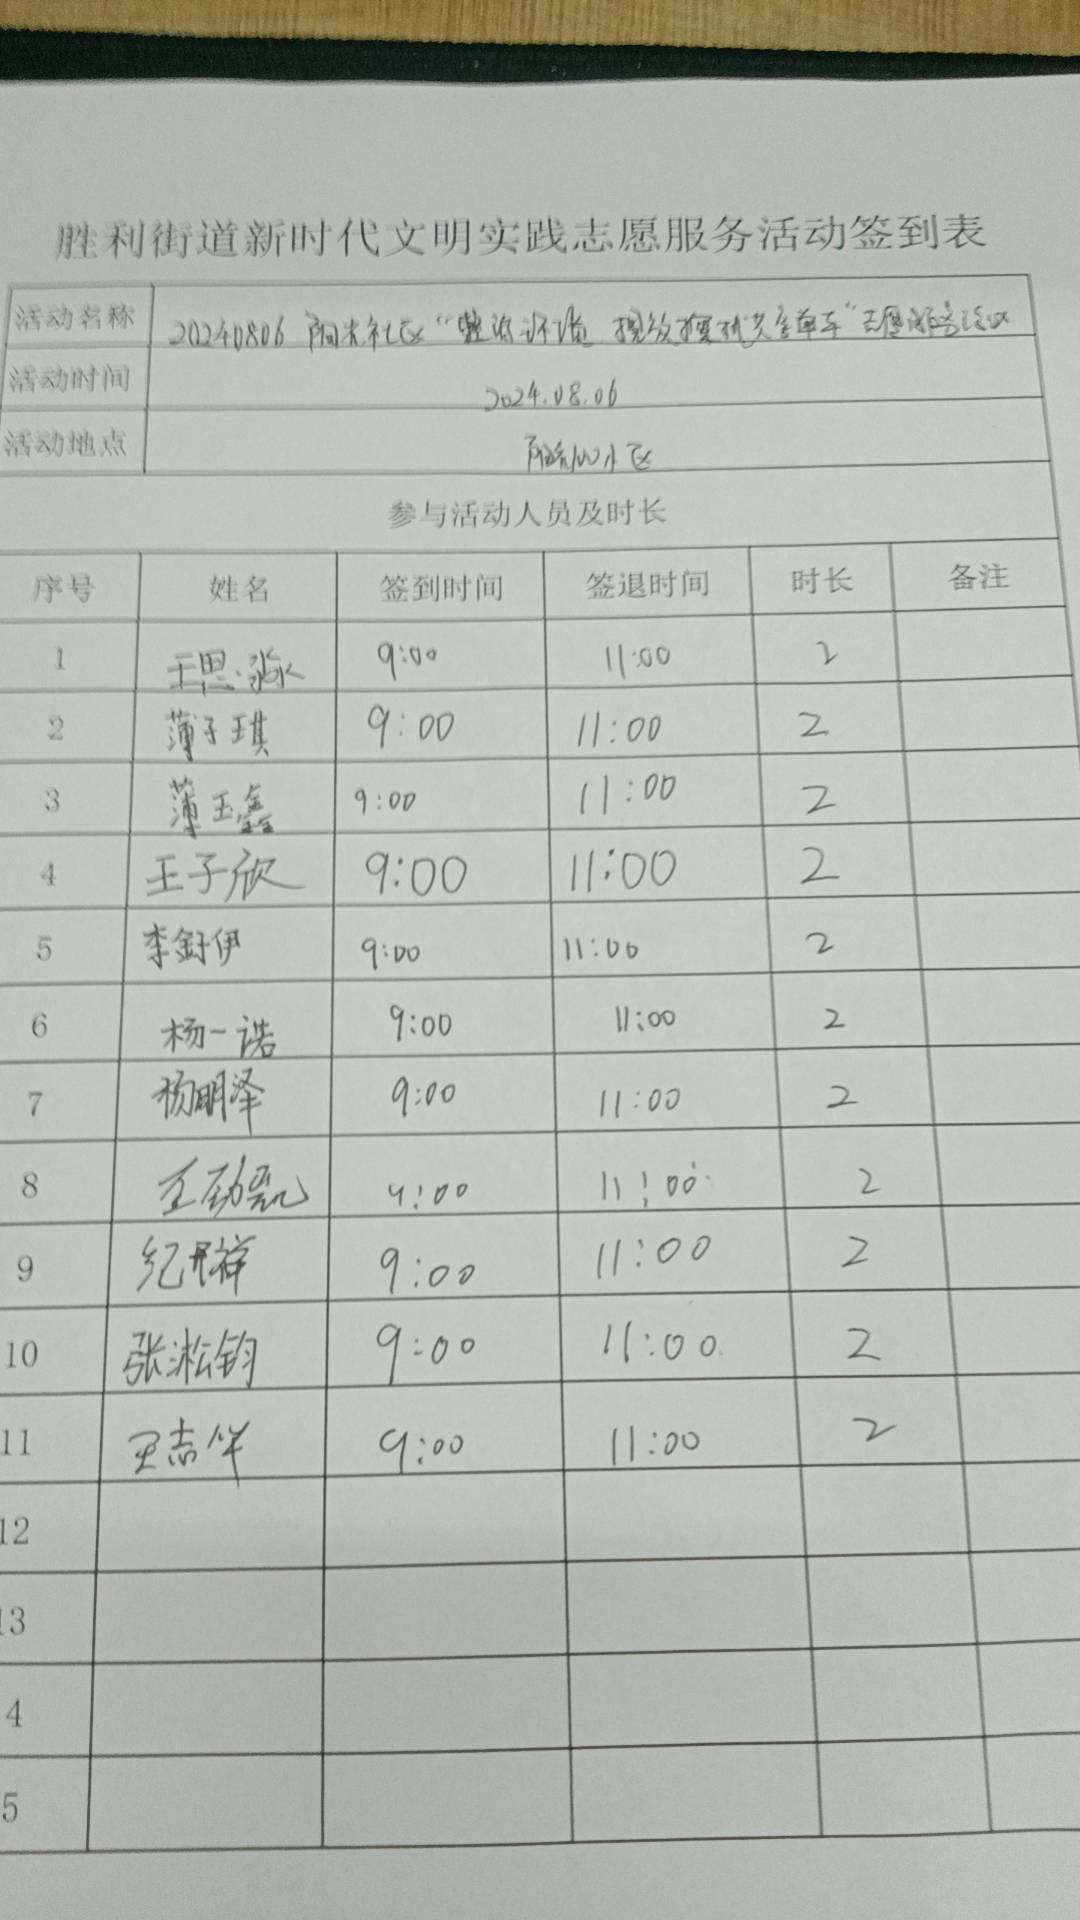 胜利街道新时代文明实践志愿服务活动签到表
活动名称 20240806 阳光社区“整治环境 摆放摩托共享单车”志愿服务活动
活动时间 2024.08.06
活动地点 小区
参与活动人员及时长
序号 姓名 签到时间 签退时间 时长 备注
1 王思 9:00 11:00 2
2 薄子琪 9:00 11:00 2
3 薄玉鑫 9:00 11:00 2
4 王子欣 9:00 11:00 2
5 李釨伊 9:00 11:00 2
6 杨一诺 9:00 11:00 2
7 杨明泽 9:00 11:00 2
8 王劲凯 9:00 11:00 2
9 纪祥 9:00 11:00 2
10 张淞钧 9:00 11:00 2
11 王志伴 9:00 11:00 2
12
13
4
5